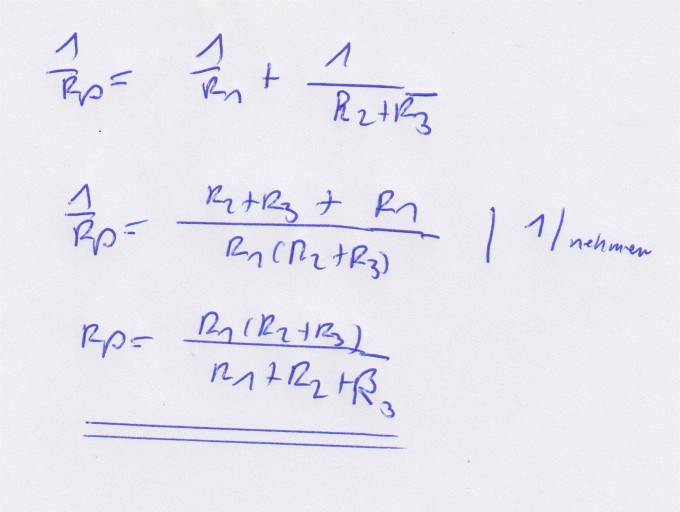 1/Rp = 1/R1 + 1/(R2+R3)
1/Rp = (R2+R3 + R1)/(R1(R2+R3)) | 1/ nehmen
Rp = (R1(R2+R3))/(R1+R2+R3)